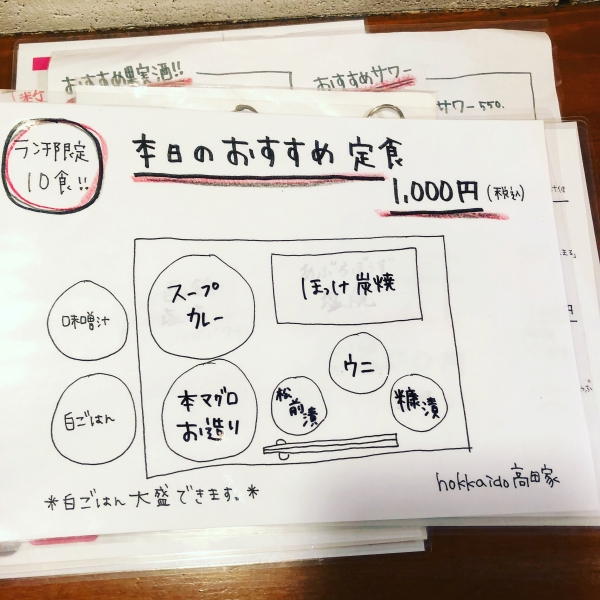 おすすめ果実酒!!
おすすめサワー
サワー 550.
ランチ限定
10食!!
本日のおすすめ定食
1,000円(税込)
スープ
カレー
ほっけ炭焼
味噌汁
ウニ
白ごはん
本マグロ
お造り
松前漬
糠漬
*白ごはん大盛できます。*
hokkaido高田家